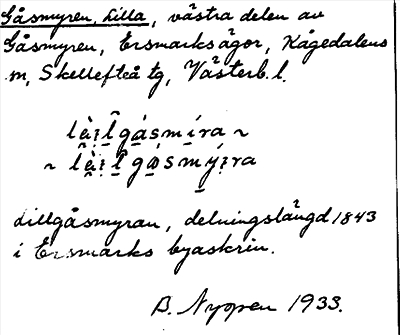 Gåsmyren, Lilla, västra delen av
Gåsmyren, Ersmarks ägor, Kågedalens
m, Skellefteå tg, Västerb. l.
làı̣l̂gása̱míra ~
~ lâı̣l̂gǿsmýı̣ra
Lillgåsmyran, delningslängd 1843
i Ersmarks byaskrin.
B. Nyopen 1933.